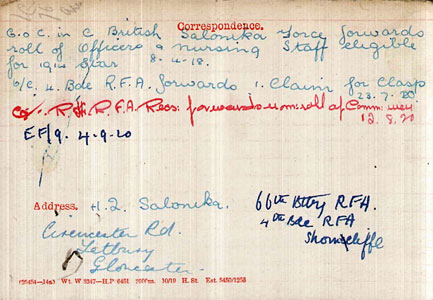 Correspondence.
G.O.C. in C British Salonika Force forwards
roll of Officers & nursing Staff eligible
for 1914 Star 8.4.18.
O/C. 4. Bde R.F.A. forwards 1. Claim for Clasp
23.7.20
R.H & R.F.A. Recs: forwards nom: roll of
12.8.20
EF/9. 4.9.20
Address. H.Q. Salonika.
Cirencester Rd.
Tetbury
Gloucester.
66th Btty R.F.A.
4th Bde RFA
Shorncliffe
Wt. W 3247—H.P 6451 10/19 H. St. Est. 5450/1255